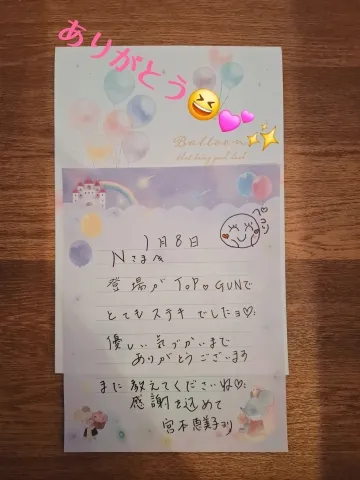 ありがとう
Balloon
that bring good luck
1月8日
Nさま
登場が TOP♡GUNで
とてもステキ でしたョ♡
優しい気づかいまで
ありがとうございます
また教えてくださいね♡
感謝を込めて
宮本恵美子より